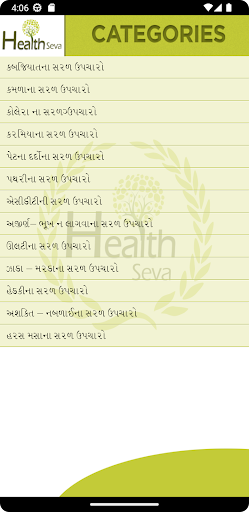 4:06
Health Seva
CATEGORIES
કબજિયાતના સરળ ઉપચારો
કમળાના સરળ ઉપચારો
કોલેરા ના સરળઉપચારો
કરમિયાના સરળ ઉપચારો
પેટના દર્દોના સરળ ઉપચારો
પથરીના સરળ ઉપચારો
એસીડીટીની સરળ ઉપચારો
અજીર્ણ– ભુખ ન લાગવાના સરળ ઉપચારો
ઊલટીના સરળ ઉપચારો
ઝાડા – મરડાના સરળ ઉપચારો
હેડકીના સરળ ઉપચારો
અશકિત – નબળાઈના સરળ ઉપચારો
હરસ મસાના સરળ ઉપચારો
Health
Seva